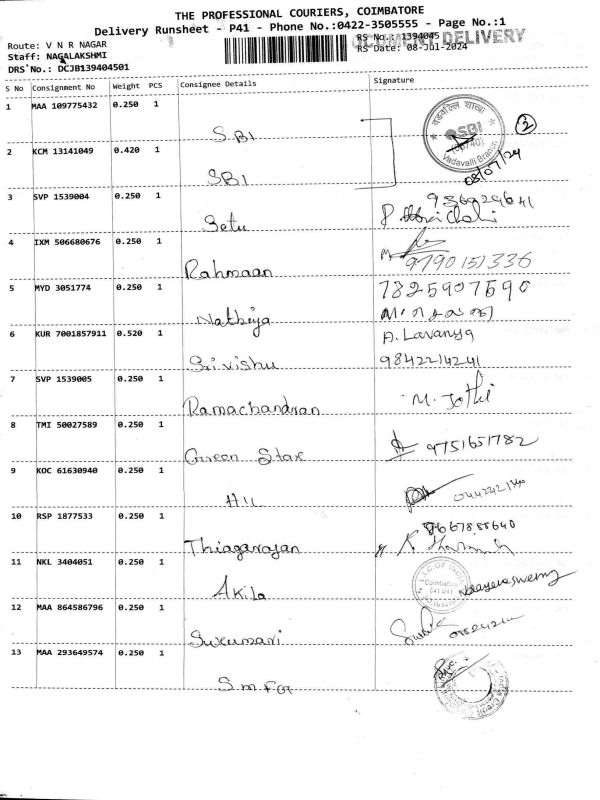 THE PROFESSIONAL COURIERS, COIMBATORE
Delivery Runsheet - P41 - Phone No.:0422-3505555 - Page No.:1
Route: V N R NAGAR
RS No.: 1394045
DELIVERY
Staff: NAGALAKSHMI
RS Date: 08-Jul-2024
DRS No.: DCJB139404501
S No Consignment No Weight PCS Consignee Details Signature
1 MAA 109775432 0.250 1
SBI
वडवल्लि शाखा
SBI
Vadavalli Branch
2
08/07/24
2 KCM 13141049 0.420 1
SBI
3 SVP 1539004 0.250 1
Setu
4 IXM 506680676 0.250 1
Rahmaan
9790151336
5 MYD 3051774 0.250 1
Nathiya
7825907590
6 KUR 7001857911 0.520 1
Srivishu
A. Lavanya
9842214241
7 SVP 1539005 0.250 1
Ramachandran
M. Jothi
8 TMI 50027589 0.250 1
Green Star
9751651782
9 KOC 61630940 0.250 1
10 RSP 1877533 0.250 1
Thiagarajan
11 NKL 3404051 0.250 1
Akila
L.I.C. OF INDIA
Coimbatore
12 MAA 864586796 0.250 1
Sukumari
13 MAA 293649574 0.250 1